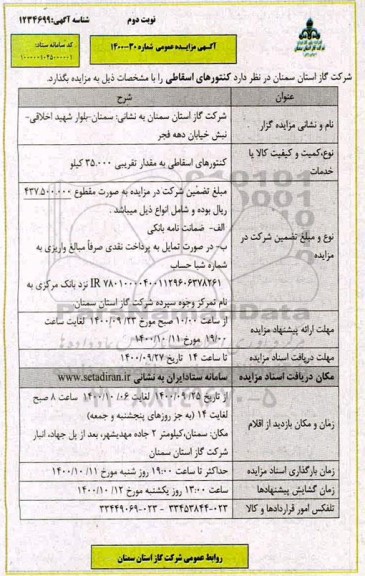 نوبت دوم
شناسه آگهی: ۱۲۳۴۶۹۹
آگهی مزایده عمومی شماره ۳۰-۱۴۰۰
کد سامانه ستاد:
شرکت گاز استان سمنان
شرکت گاز استان سمنان در نظر دارد کنتورهای اسقاطی را با مشخصات ذیل به مزایده بگذارد.
عنوان
شرح
نام و نشانی مزایده گزار
شرکت گاز استان سمنان به نشانی: سمنان-بلوار شهید اخلاقی-
نبش خیابان دهه فجر
نوع،کمیت و کیفیت کالا یا
خدمات
کنتورهای اسقاطی به مقدار تقریبی ۳۵.۰۰۰ کیلو
نوع و مبلغ تضمین شرکت در
مزایده
مبلغ تضمین شرکت در مزایده به صورت مقطوع ۴۳۷.۵۰۰.۰۰۰
ریال بوده و شامل انواع ذیل میباشد .
الف- ضمانت نامه بانکی
ب- در صورت تمایل به پرداخت نقدی صرفاً مبالغ واریزی به
شماره شبا حساب
IR ۷۸۰۱۰۰۰۰۴۰۰۱۱۲۹۶۰۶۳۷۸۲۶۱ نزد بانک مرکزی به
نام تمرکز وجوه سپرده شرکت گاز استان سمنان
مهلت ارائه پیشنهاد مزایده
از ساعت ۱۰/۰۰ صبح مورخ ۱۴۰۰/۰۹/۲۳ لغایت ساعت
۱۹/۰۰ مورخ ۱۴۰۰/۱۰/۱۱
مهلت دریافت اسناد مزایده
تا ساعت ۱۴ تاریخ ۱۴۰۰/۰۹/۲۷
مکان دریافت اسناد مزایده
سامانه ستادایران به نشانی www.setadiran.ir
زمان و مکان بازدید از اقلام
از تاریخ ۱۴۰۰/۰۹/۲۵ لغایت ۱۴۰۰/۱۰/۰۶ ساعت ۸ صبح
لغایت ۱۴ (به جز روزهای پنجشنبه و جمعه)
مکان: سمنان،کیلومتر ۲ جاده مهدیشهر، بعد از پل جهاد، انبار
شرکت گاز استان سمنان
زمان بارگذاری اسناد مزایده
حداکثر تا ساعت ۱۹:۰۰ روز شنبه مورخ ۱۴۰۰/۱۰/۱۱
زمان گشایش پیشنهادها
ساعت ۱۳:۰۰ روز یکشنبه مورخ ۱۴۰۰/۱۰/۱۲
تلفکس امور قراردادها و کالا
۰۲۳-۳۳۴۵۳۸۴۴ - ۰۲۳-۳۳۴۴۹۰۶۹
روابط عمومی شرکت گاز استان سمنان